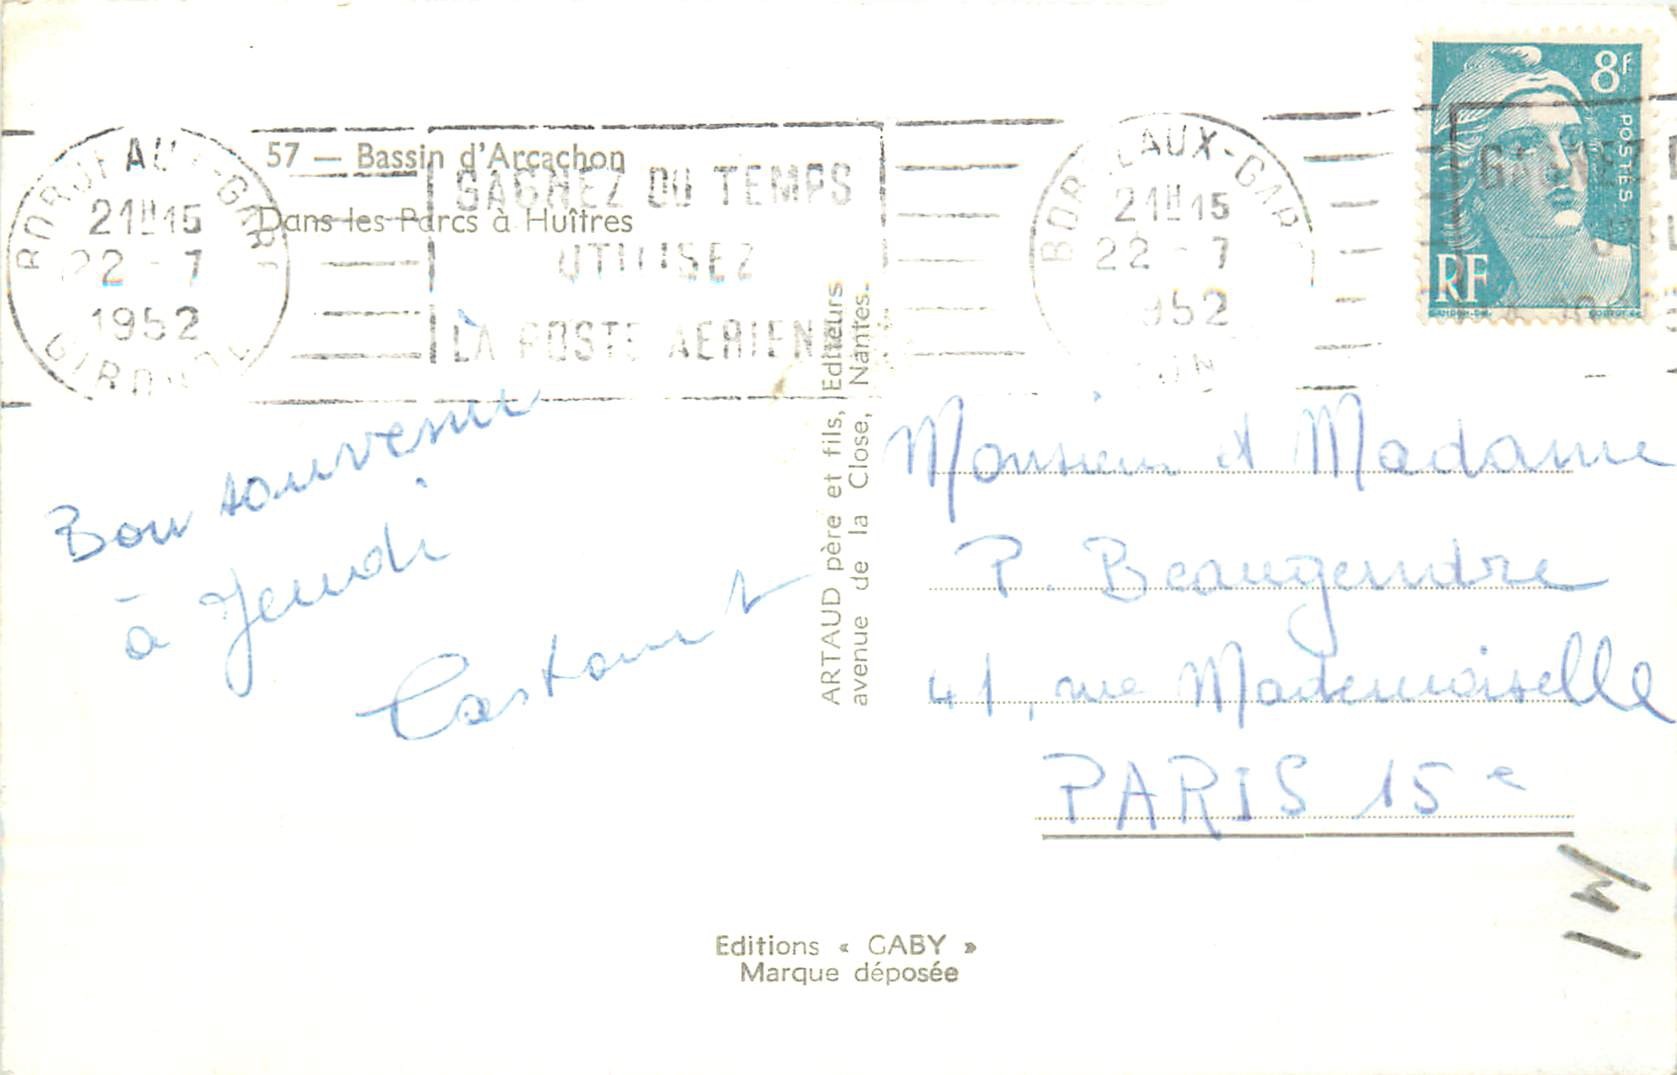 57 — Bassin d'Arcachon
Dans les Parcs à Huîtres
BORDEAUX-GARE
21H15
22 - 7
1952
GIRONDE
GAGNEZ DU TEMPS
UTILISEZ
LA POSTE AERIENNE
BORDEAUX-GARE
21H15
22 - 7
1952
8F
POSTES
RF
Bon souvenir
à Jeudi
ARTAUD père et fils, Editeurs
avenue de la Close, Nantes.
Monsieur et Madame
P. Beaugendre
41, rue Mademoiselle
PARIS 15e
Editions « GABY »
Marque déposée